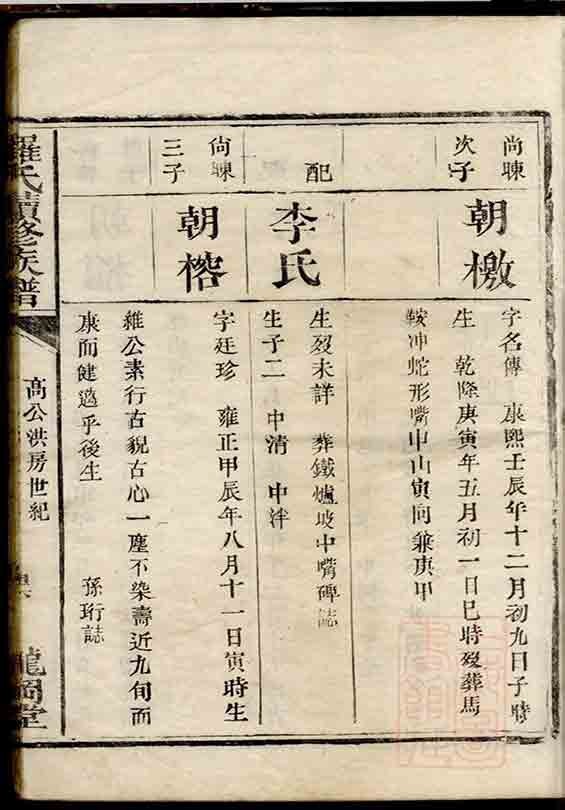 尚暕
次子
朝檄
字名傳 康熙壬辰年十二月初九日子時
生 乾隆庚寅年五月初一日巳時歿葬馬
鞍冲蛇形嘴申山寅向兼庚甲
配
李氏
生歿未詳 葬鐵爐坡中嘴碑誌
生子二 中清 中泮
尚暕
三子
朝楁
字廷珍 雍正甲辰年八月十一日寅時生
維公素行古貌古心一塵不染壽近九旬而
康而健邁乎後生 孫珩誌
羅氏續修族譜
高公洪房世紀
龍岡堂